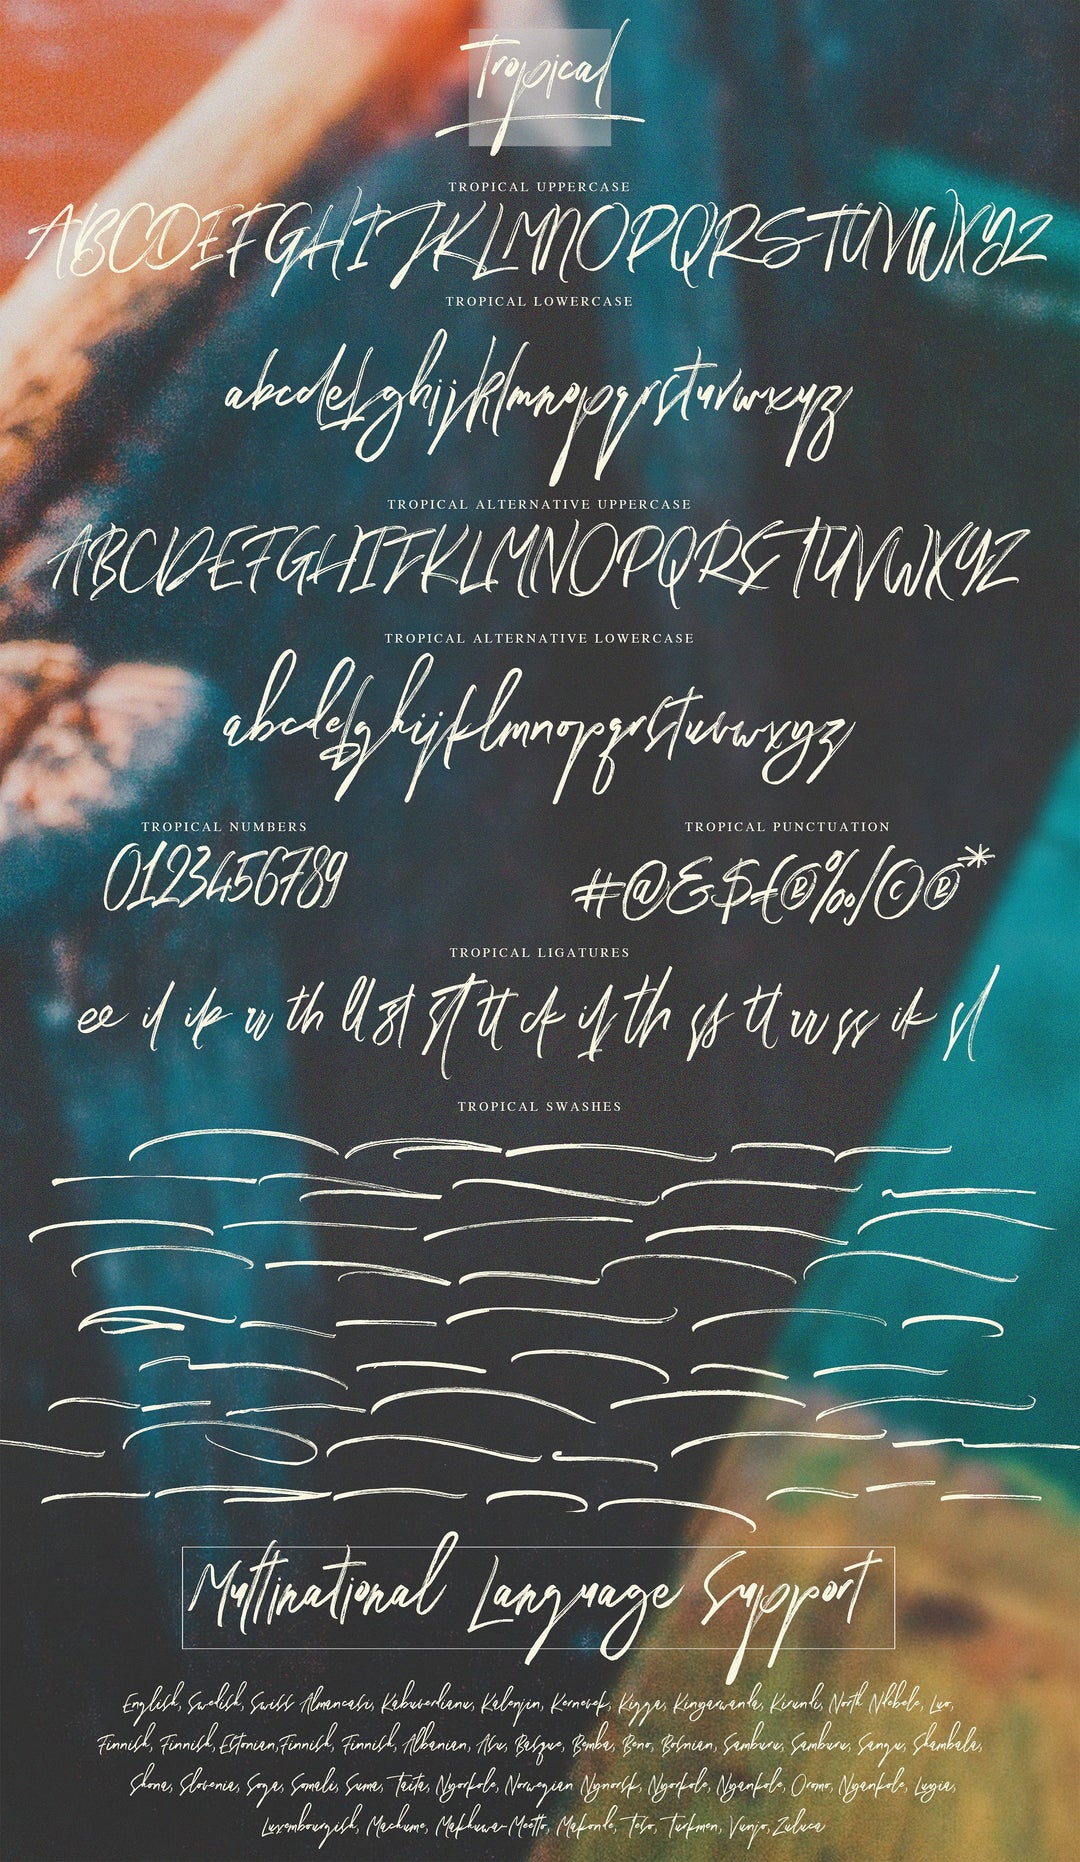 Tropical
TROPICAL UPPERCASE
ABCDEFGHIJKLMNOPQRSTUVWXYZ
TROPICAL LOWERCASE
abcdefghijklmnopqrstuvwxyz
TROPICAL ALTERNATIVE UPPERCASE
ABCDEFGHIJKLMNOPQRSTUVWXYZ
TROPICAL ALTERNATIVE LOWERCASE
abcdefghijklmnopqrstuvwxyz
TROPICAL NUMBERS
0123456789
TROPICAL PUNCTUATION
#@&$£®%/©®*
TROPICAL LIGATURES
ee il ik rr th ll st st tt ck if th ss tt rr ss ik sl
TROPICAL SWASHES
Multinational Language Support
English, Swedish, Swiss Almancası, Kabuverdianu, Kalenjin, Kernevek, Kigga, Kinyarwanda, Kirundi, North Ndebele, Luo,
Finnish, Finnish, Estonian, Finnish, Finnish, Albanian, Asu, Basque, Bemba, Beno, Bosnian, Samburu, Samburu, Sangu, Shambala,
Shona, Slovenia, Soga, Somali, Suma, Taita, Nyorkole, Norwegian Nynorsk, Nyorkole, Nyankole, Oromo, Nyankole, Lugia,
Luxembourgish, Machume, Makhuwa-Meetto, Makonde, Teso, Turkmen, Vunjo, Zuluca